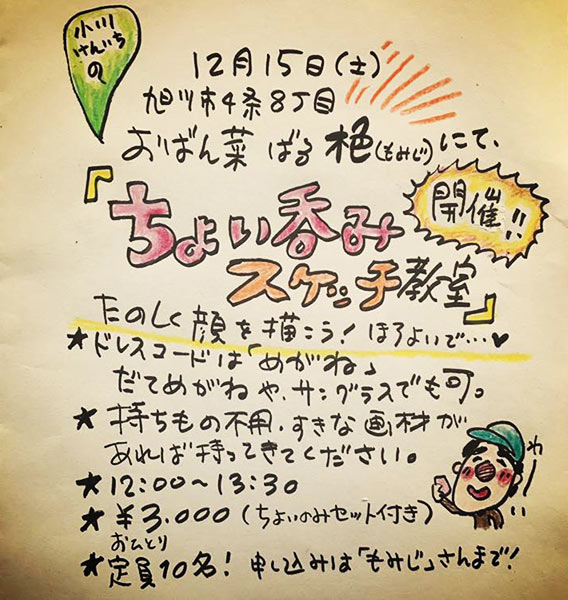 小川
けんいち
の
12月15日(土)
旭川市4条8丁目
おばん菜 ばる 椛(もみじ)にて、
『ちょい呑み
スケッチ教室』
開催!!
たのしく顔を描こう! ほろよいで…♥
★ドレスコードは「めがね」
だてめがねや、サングラスでも可。
★持ちもの不用.すきな画材が
あれば持ってきてください。
★12:00〜13:30
★¥3.000(ちょいのみセット付き)
おひとり
★定員10名! 申し込みは「もみじ」さんまで!
わーい